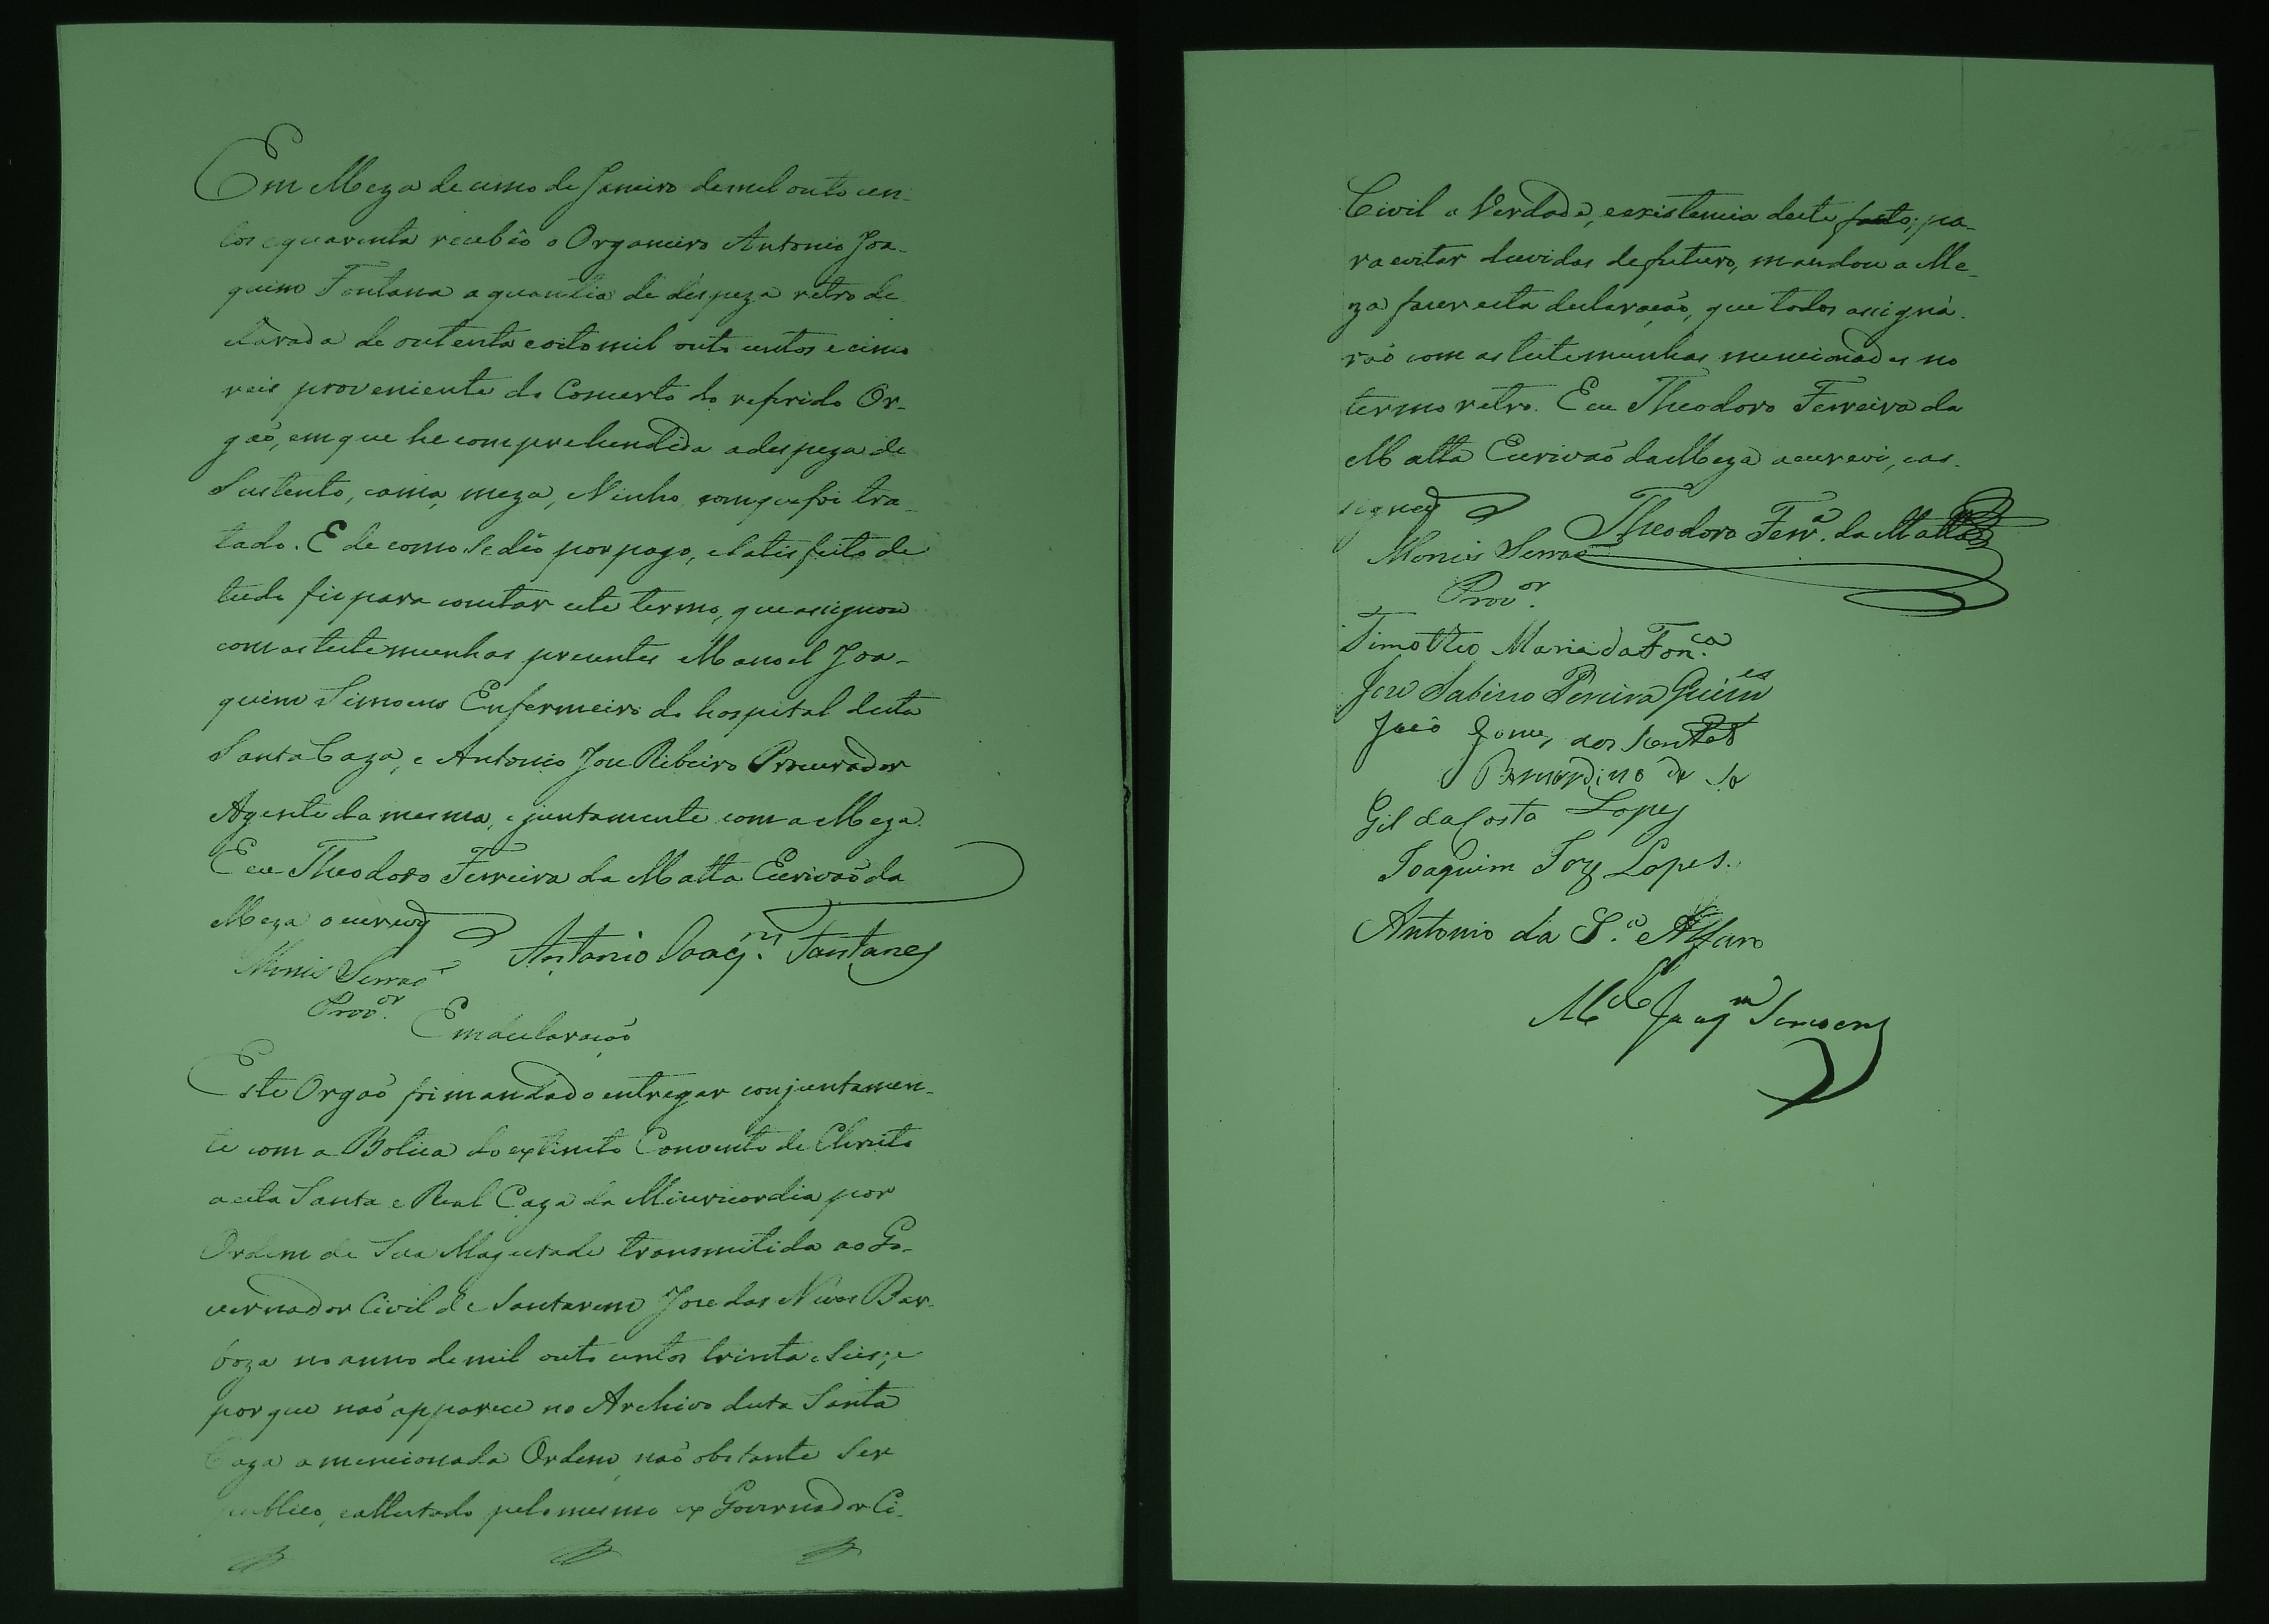 Em Meza de cinco de Janeiro de mil outo cen-
tos e quarenta recebêo o Organeiro Antonio Joa-
quim Fontana a quantia de despeza retro de-
clarada de outenta e oito mil outo centos e cinco
reis proveniente do Concerto do referido Or-
gaõ, em que he comprehendida a despeza de
Sustento, cama, meza, e Vinho com que foi tra-
tado. E de como se dêo por pago, e satisfeito de
tudo fis para constar este termo, que assignou
com as testemunhas prezentes Manoel Joa-
quim Simoens Enfermeiro do hospital desta
Santa Caza, e Antonio Joze Ribeiro Procurador
Agente da mesma, e juntamente com a Meza.
E eu Theodoro Ferreira da Matta Escrivaõ da
Meza o escrevy
Antonio Joaq.m Fantanes
Monis Serraõ
Prov.or
Em declaraçaõ
Este Orgaõ foi mandado entregar conjuntamen-
te com a Botica do extincto Convento de Christo
a esta Santa e Real Caza da Misericordia por
Ordem de Sua Magestade transmitida ao Go-
vernador Civil de Santarem Joze das Neves Bar-
boza no anno de mil outo centos trinta e seis; e
porque naõ apparece no Archivo desta Santa
Caza a mencionada Ordem, naõ obstante ser
publico, e attestado pelo mesmo ex Governador Ci-
Civil a Verdade, e existencia deste facto; pa-
ra evitar duvidas de futuro, mandou a Me-
za fazer esta declaraçaõ, que todos assigna-
raõ com as testemunhas mencionadas no
termo retro. E eu Theodoro Ferreira da
Matta Escrivaõ da Meza a escrevi, e as-
signey
Theodoro Ferr.a da Matta
Monis Serraõ
Prov.or
Timotheo Maria da Fon.ca
Joze Sabino Pereira Guim.es
João Gomes dos Santos
Bernardino de
Gil da Costa Lopes
Joaquim Joze Lopes.
Antonio da S.a e Alfaro
M.el Joaq.m Simoens